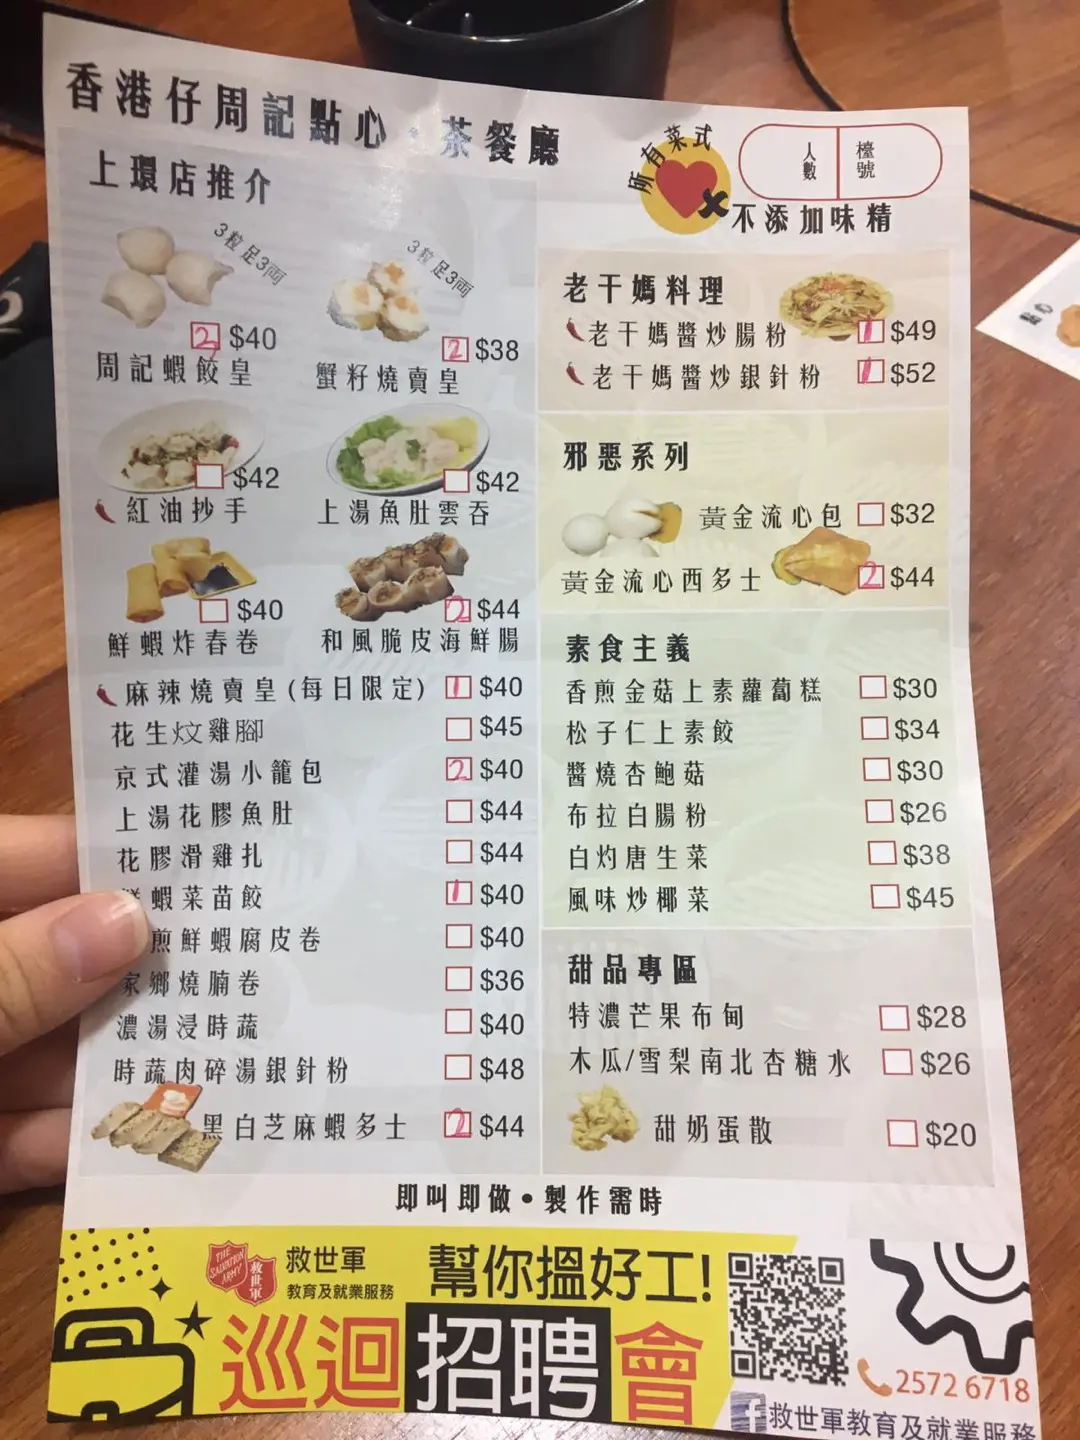 香港仔周記點心・茶餐廳
上環店推介
所有菜式
不添加味精
人數
檯號
3粒足3両
2 $40
周記蝦餃皇
3粒足3両
2 $38
蟹籽燒賣皇
$42
紅油抄手
$42
上湯魚肚雲吞
$40
鮮蝦炸春卷
2 $44
和風脆皮海鮮腸
麻辣燒賣皇(每日限定) 1 $40
花生炆雞腳 $45
京式灌湯小籠包 2 $40
上湯花膠魚肚 $44
花膠滑雞扎 $44
鮮蝦菜苗餃 1 $40
煎鮮蝦腐皮卷 $40
家鄉燒腩卷 $36
濃湯浸時蔬 $40
時蔬肉碎湯銀針粉 $48
黑白芝麻蝦多士 2 $44
老干媽料理
老干媽醬炒腸粉 1 $49
老干媽醬炒銀針粉 1 $52
邪惡系列
黃金流心包 $32
黃金流心西多士 2 $44
素食主義
香煎金菇上素蘿蔔糕 $30
松子仁上素餃 $34
醬燒杏鮑菇 $30
布拉白腸粉 $26
白灼唐生菜 $38
風味炒椰菜 $45
甜品專區
特濃芒果布甸 $28
木瓜/雪梨南北杏糖水 $26
甜奶蛋散 $20
即叫即做•製作需時
THE SALVATION ARMY
救世軍
救世軍
教育及就業服務
幫你搵好工!
巡迴招聘會
2572 6718
救世軍教育及就業服務
點心